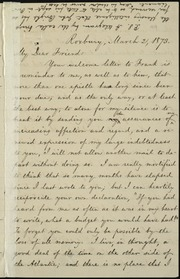 Roxbury, March 2, 1873.
My Dear Friend:
Your welcome letter to Frank is
reminder to me, as well as to him, that
more than one epistle has long since been
your due; and as the only way, or at least
the best way, to atone for my silence is to
beat it by sending you the assurance of
increasing affection and regard, and a re-
newed expression of my large indebtedness
to you, I will not let another moment
pass without doing so. I am really mortified
to think that so many months have elapsed
since I last wrote to you, but I can heartily
reciprocate your own declaration. If you had
heard from me as often as it was in my heart
to write, what a budget you would have had!
To forget you could only be possible by the
loss of all memory. I live, in thought, a
good deal of the time on the other side of
the Atlantic, and there is no place that I